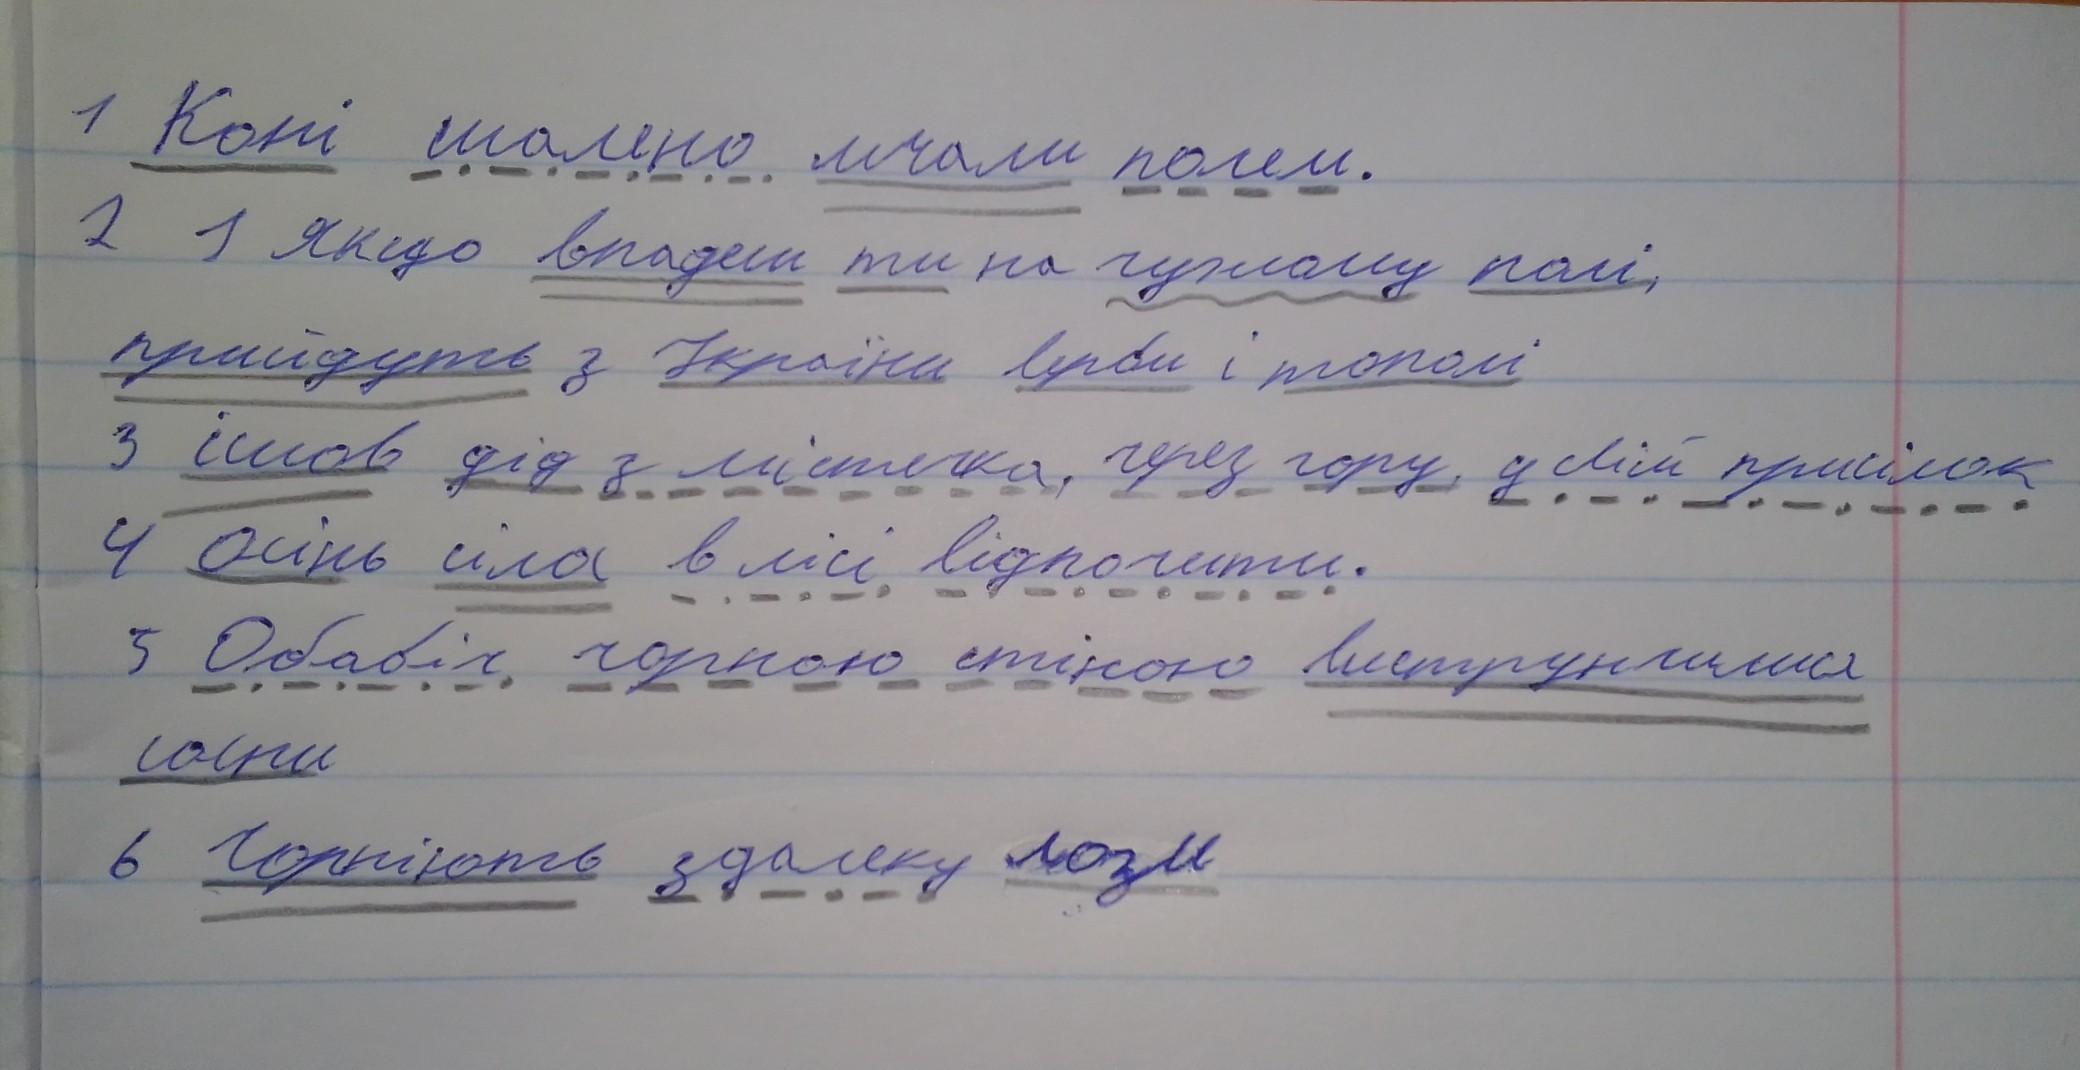 1 Коні шалено мчали полем.
2 1 Якщо впадеш ти на чужому полі,
прийдуть з України верби і тополі
3 ішов дід з містечка, через гору, у свій присілок
4 Осінь сіла в лісі відпочити.
5 Обабіч чорною стіною виструнчилися
сосни
6 Чорніють здалеку лози